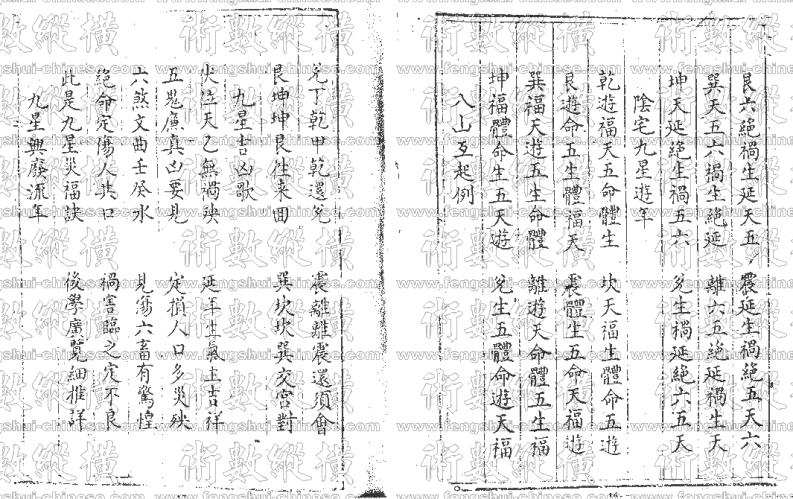 艮六絶禍生延天五 震延生禍絶五天六
巽天五六禍生絶延 離六五絶延禍生天
坤天延絶生禍五六 兌生禍延絶六五天
陰宅九星遊年
乾遊福天五命體生 坎天福生體命五遊
艮遊命五生體福天 震體生五命天福遊
巽福天遊五生命體 離遊天命體五生福
坤福體命生五天遊 兌生五體命遊天福
八山互起例
兌丁乾甲乾還兌 震離離震還須會
艮坤坤艮往來回 巽坎坎巽交宮對
九星吉凶歌
天乙無禍殃 延年生氣主吉祥
五鬼廉貞凶要見 定損人口多災殃
六煞文曲壬癸水 見傷六畜有驚惶
絕命定傷人共口 禍害臨之定不良
此是九星災福訣 後學廣覽細推詳
九星興廢流年
術數縱橫
www.fengshui-chinese.com